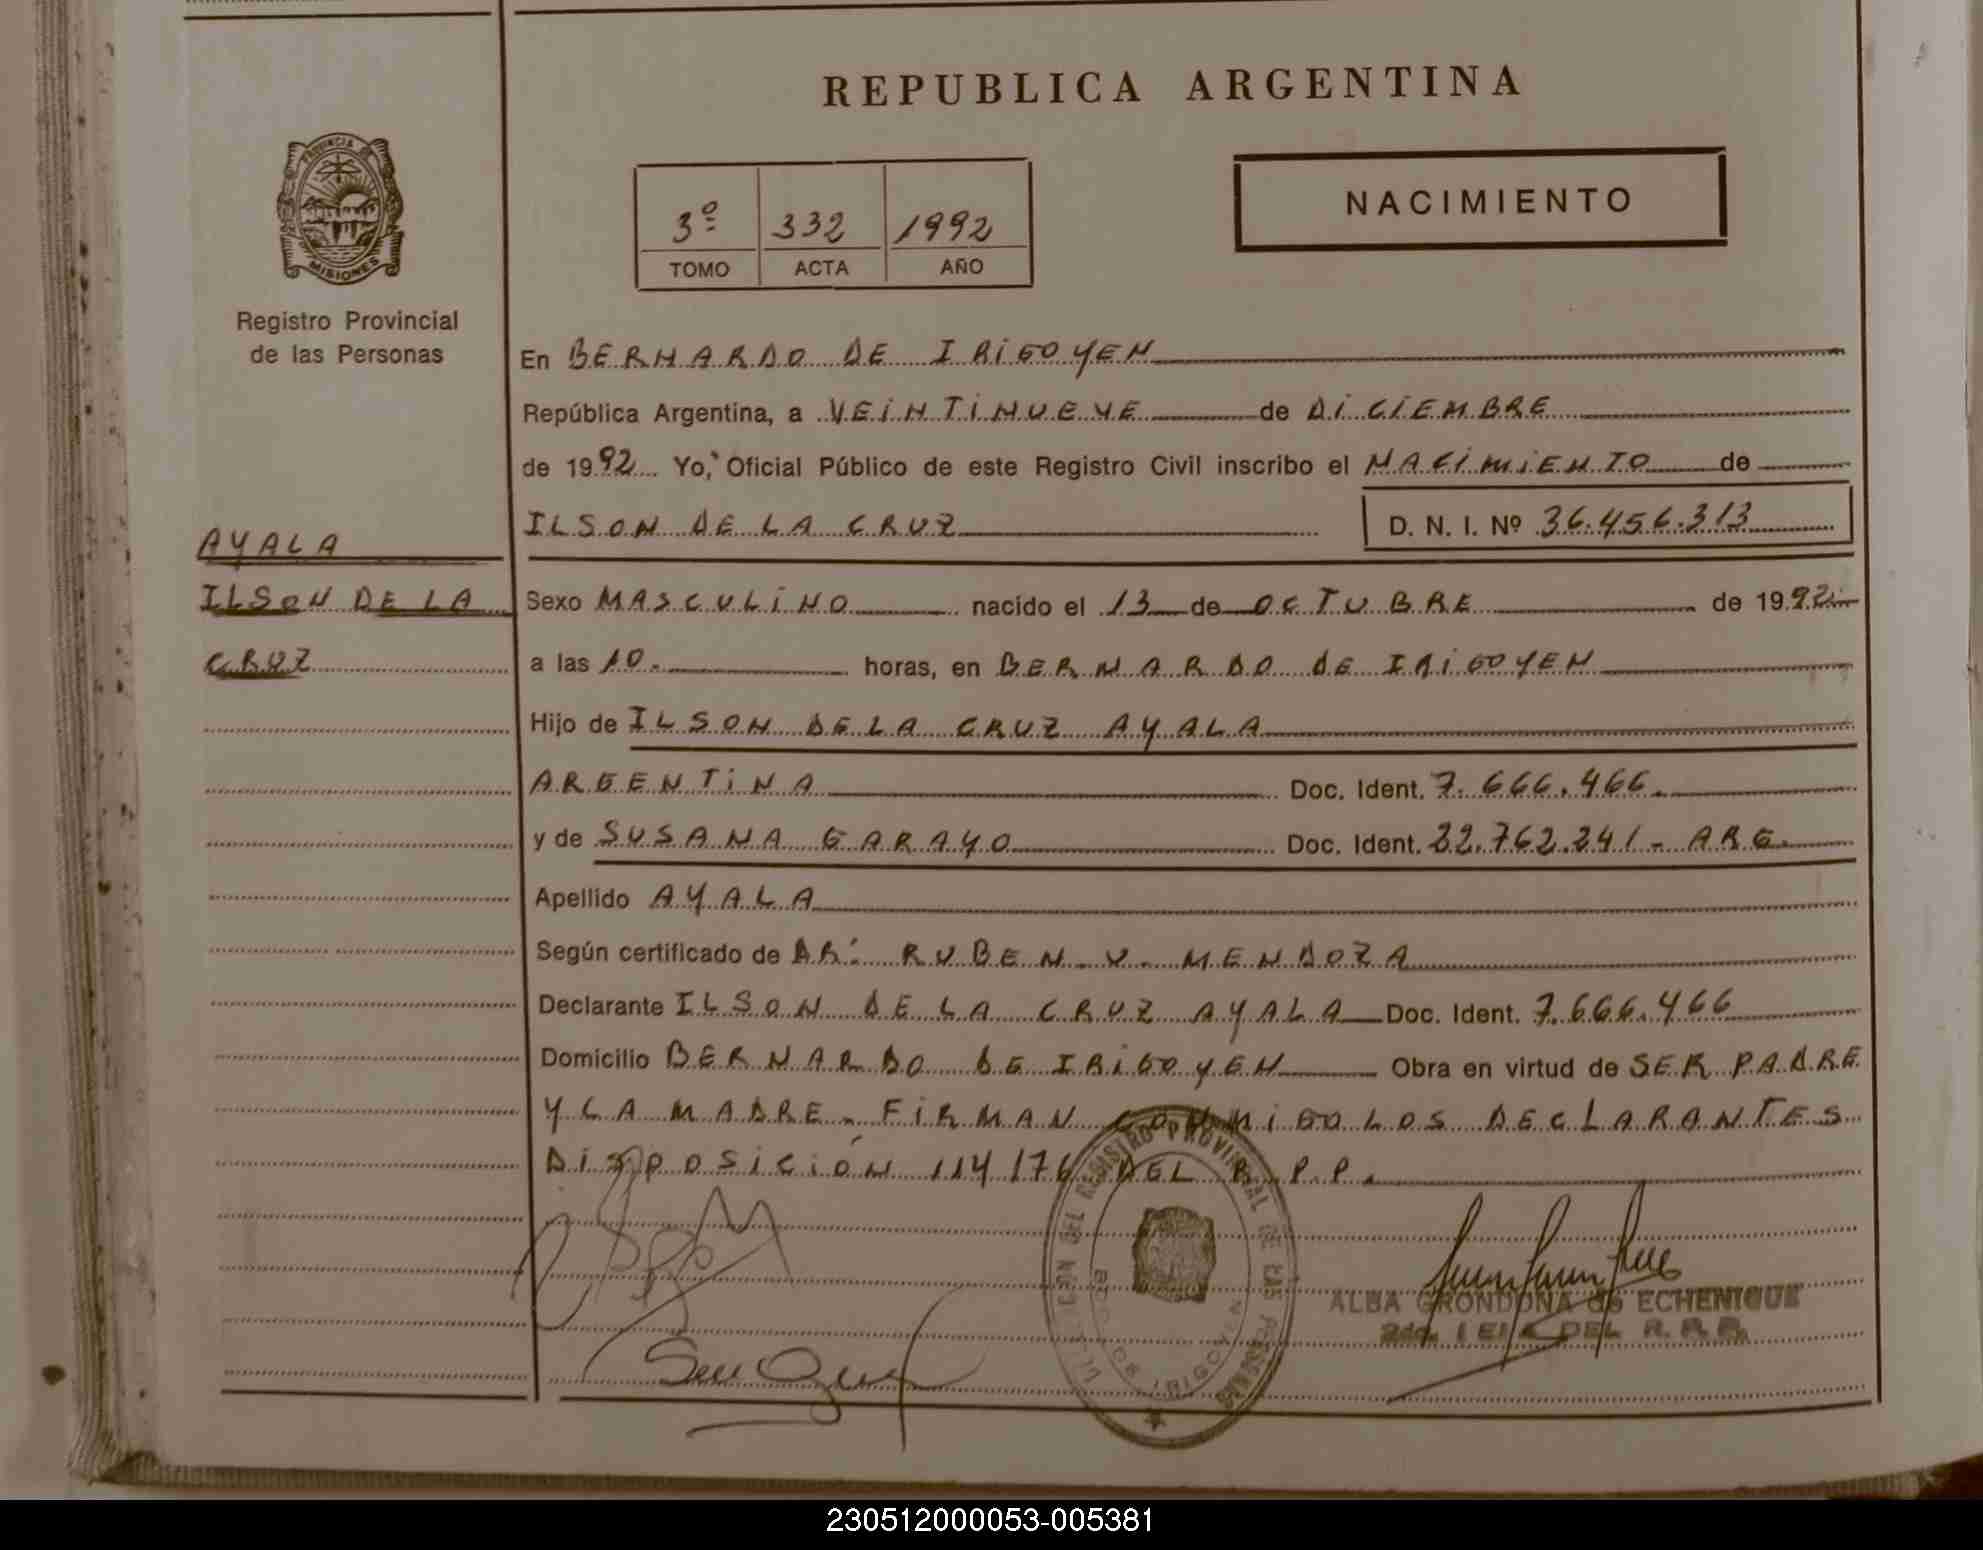 REPUBLICA ARGENTINA
PROVINCIA DE
MISIONES
Registro Provincial
de las Personas
3º 332 1992
TOMO ACTA AÑO
NACIMIENTO
En BERNARDO DE IRIGOYEN
República Argentina, a VEINTINUEVE de DICIEMBRE
de 1992 Yo, Oficial Público de este Registro Civil inscribo el NACIMIENTO de
ILSON DE LA CRUZ D. N. I. Nº 36.456.313
AYALA
ILSON DE LA
CRUZ
Sexo MASCULINO nacido el 13 de OCTUBRE de 1992
a las 10. horas, en BERNARDO DE IRIGOYEN
Hijo de ILSON DE LA CRUZ AYALA
ARGENTINA Doc. Ident. 7.666.466.
y de SUSANA GARAYO Doc. Ident. 22.762.241 - ARG.
Apellido AYALA
Según certificado de DR: RUBEN. V. MENDOZA
Declarante ILSON DE LA CRUZ AYALA Doc. Ident. 7.666.466
Domicilio BERNARDO DE IRIGOYEN Obra en virtud de SER PADRE
Y LA MADRE - FIRMAN CONMIGO LOS DECLARANTES
DISPOSICIÓN 114/76 DEL R.P.P.
DEL REGISTRO PROVINCIAL DE LAS PERSONAS
ALBA GRONDONA de ECHENIQUE
DEL R.P.P.
230512000053-005381